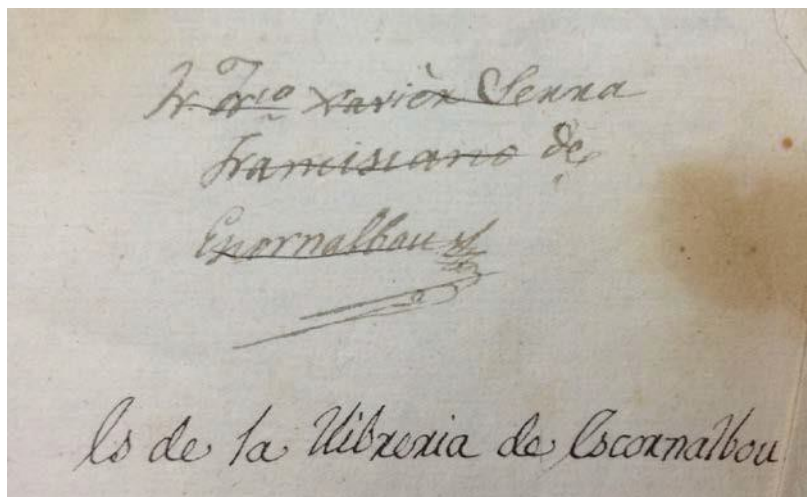 Fr. Fr.co Xavièr Serra
Franciscano de
Escornalbou
Es de la Llibreria de Escornalbou